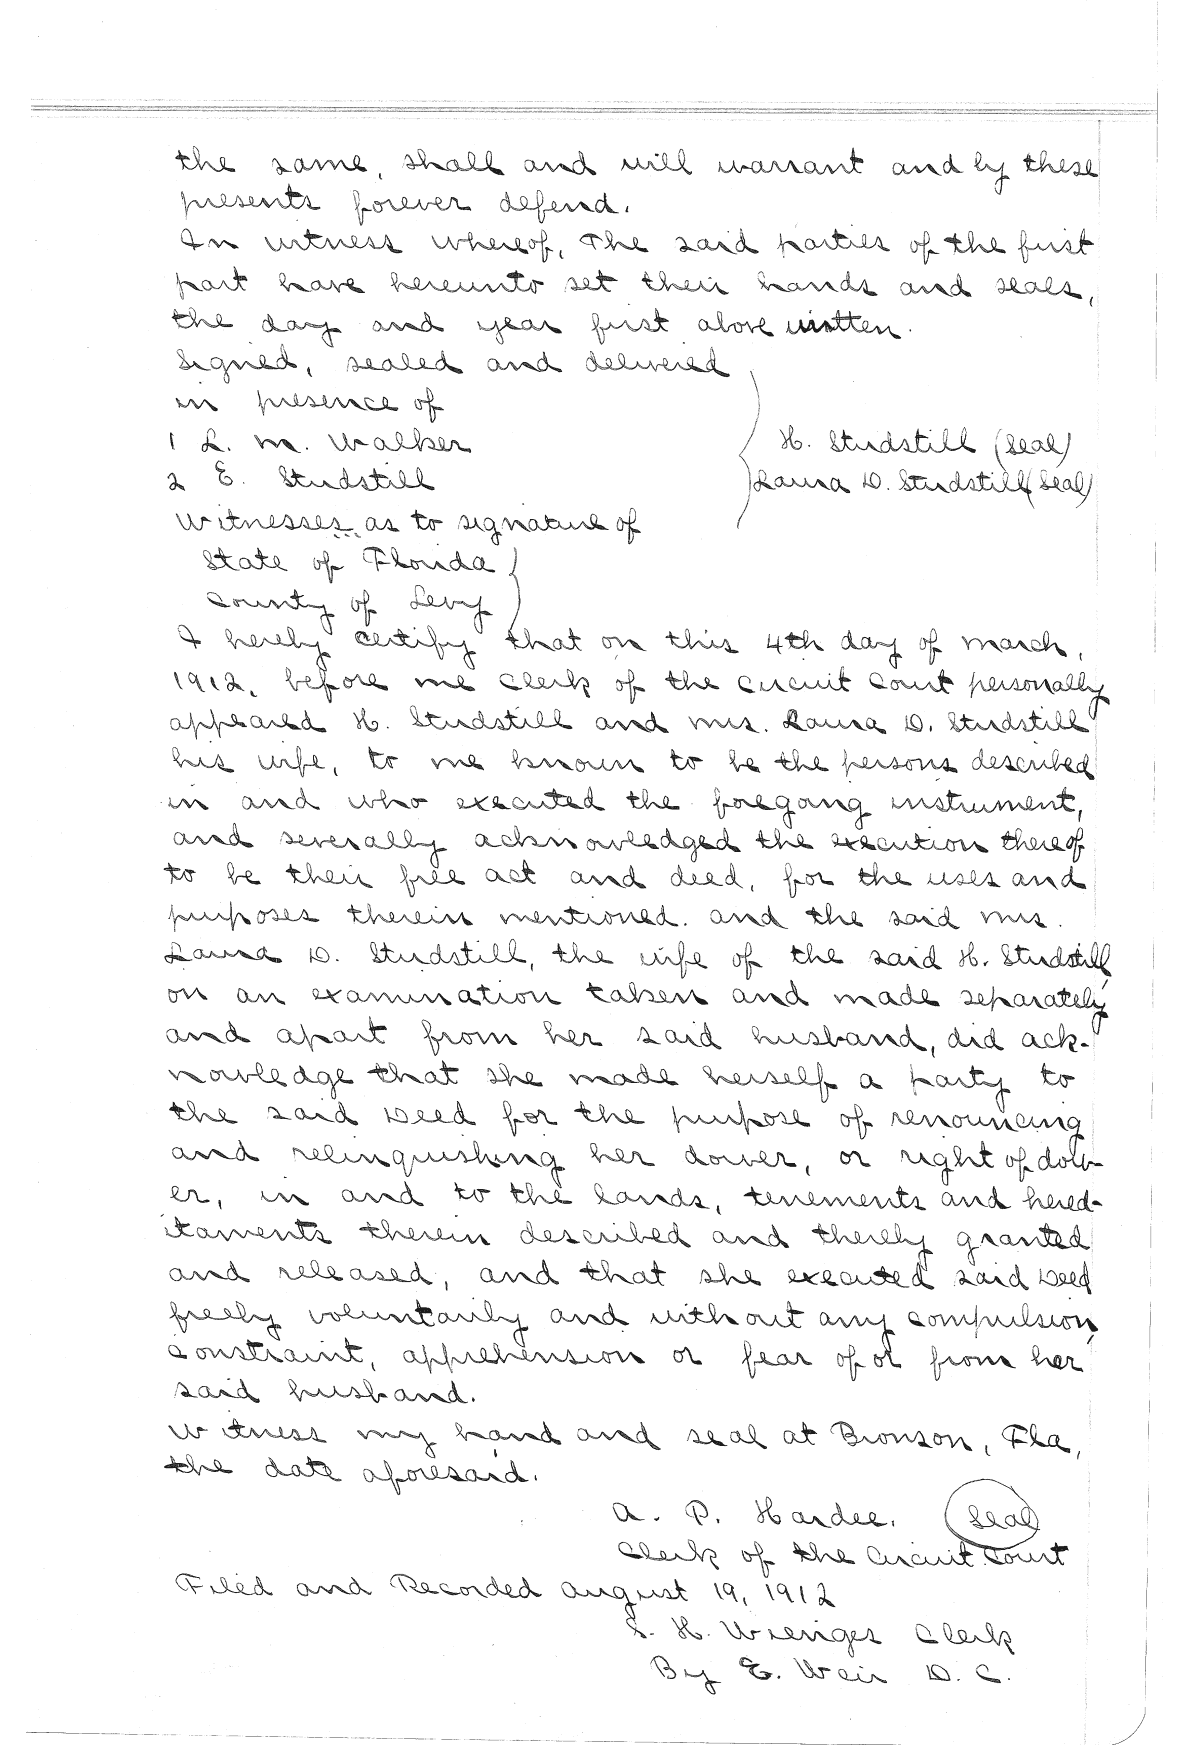 the same, shall and will warrant and by these
presents forever defend.
In witness whereof, The said parties of the first
part have hereunto set their hands and seals,
the day and year first above written.
Signed, sealed and delivered
in presence of
1 L. M. Walker
H. Studstill (Seal)
2 E. Studstill
Laura D. Studstill (Seal)
Witnesses as to signature of
State of Florida
County of Levy
I hereby certify that on this 4th day of March,
1912, before me Clerk of the Circuit Court personally
appeared H. Studstill and Mrs. Laura D. Studstill
his wife, to me known to be the persons described
in and who executed the foregong instrument,
and severally acknowledged the execution thereof
to be their free act and deed, for the uses and
purposes therein mentioned. and the said Mrs.
Laura D. Studstill, the wife of the said H. Studstill,
on an examination taken and made separately
and apart from her said husband, did ack-
nowledge that she made herself a party to
the said Deed for the purpose of renouncing
and relinquishing her dower, or right of dow-
er, in and to the lands, tenements and hered-
itaments therein described and thereby granted
and released, and that she executed said Deed
freely voluntarily and without any compulsion,
constraint, apprehension or fear of or from her
said husband.
Witness my hand and seal at Bronson, Fla,
the date aforesaid.
A. P. Hardee. Seal
Clerk of the Circuit Court
Filed and Recorded August 19, 1912
H. Wienges Clerk
By E. Weir D. C.